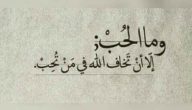 وما الحُبّ;
إلا أنْ تَخاف الله في مَنْ تُحِبْ.